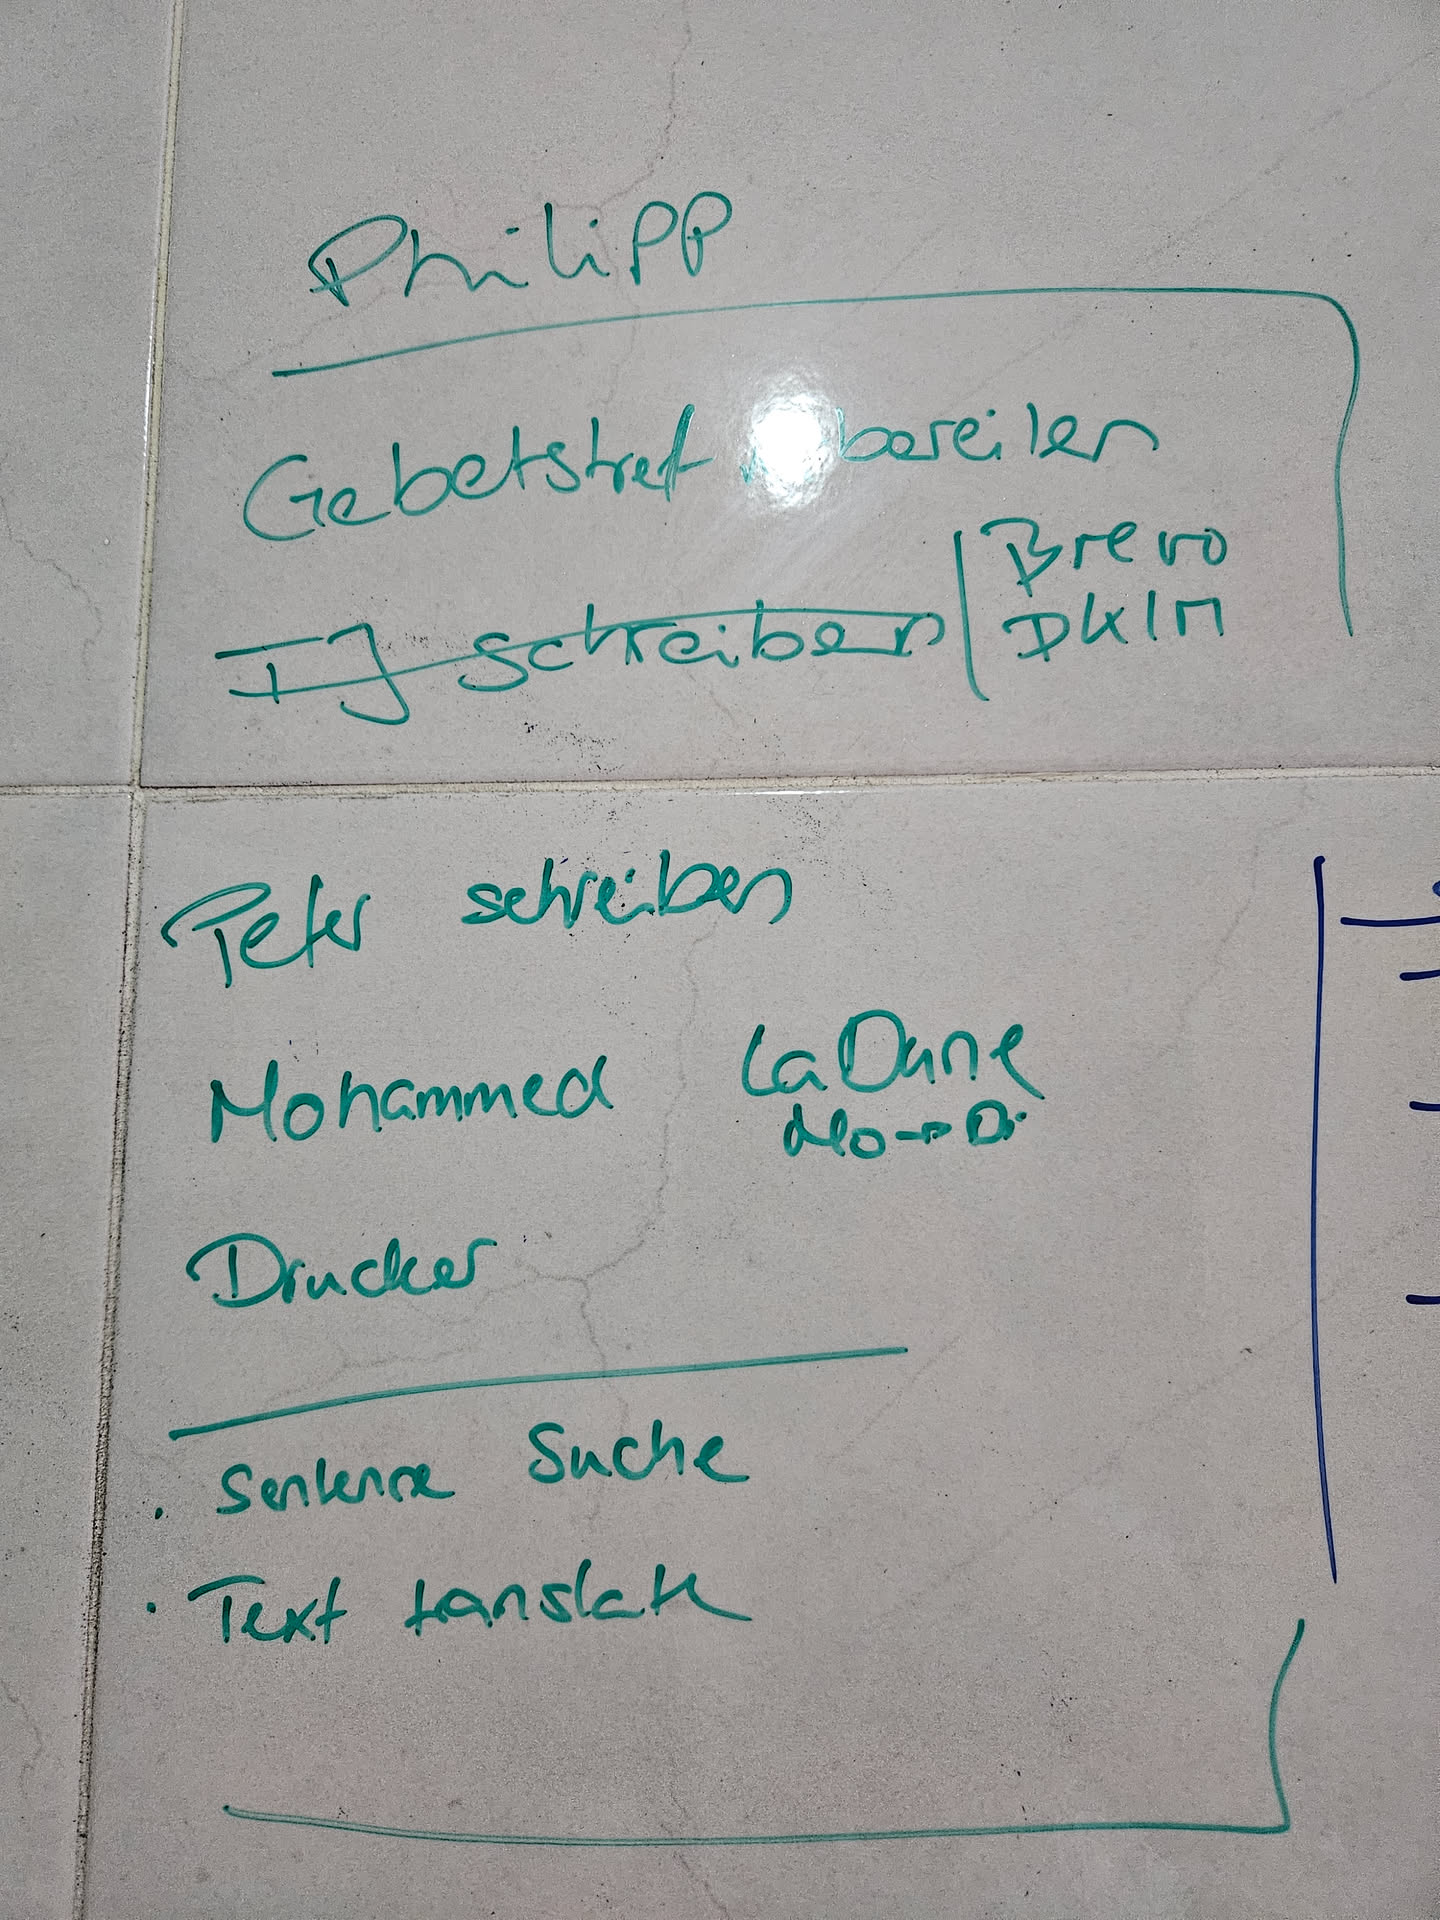 Philipp
Gebetstref bereiten
IJ schreiben
Brevo
DKIM
Peter schreiben
Mohammed LaDune
Mo → Di
Drucker
• Sentence Suche
• Text translate